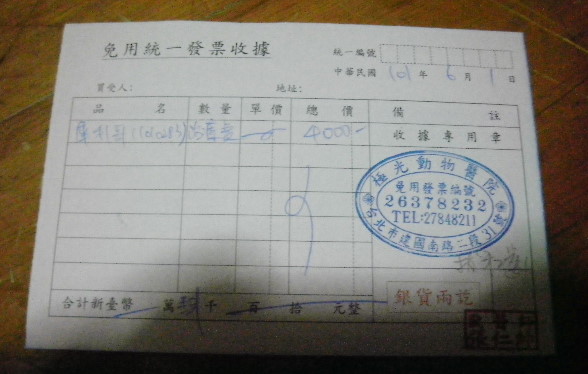 免用統一發票收據
統一編號
中華民國 101 年 6 月 1 日
買受人: 地址:
品 名 數量 單價 總 價 備 註
4000-
收據專用章
極光動物醫院
免用發票編號
26378232
TEL:27848211
台北市建國南路二段31號
合計新臺幣 萬 千 百 拾 元整
銀貨兩訖